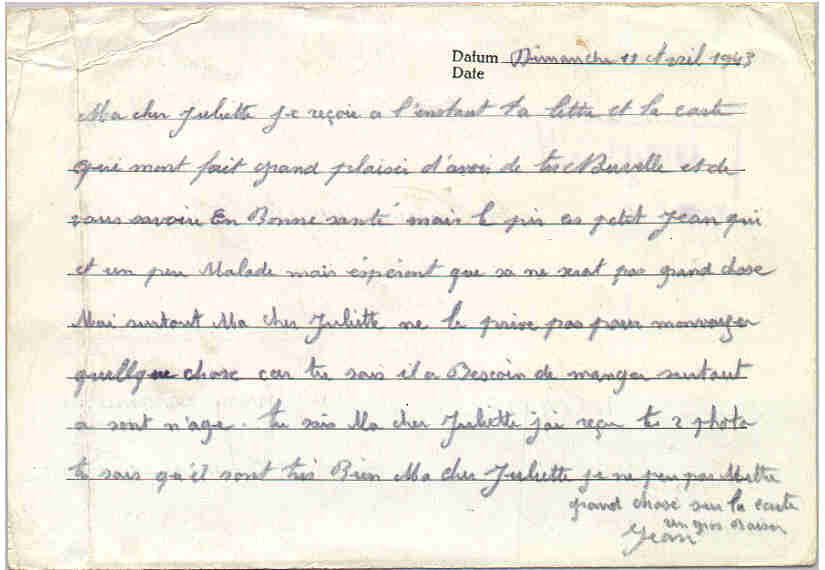 Datum Dimanche 11 Avril 1943
Date
Ma cher Juliette je reçoie a l'enstant ta lettre et la carte
qui mont fait grand plaisir d'avoir de tes Nuvelle et de
vous savoire En Bonne santé mais le pir es petit Jean qui
et un peu Malade mais ésperont que sa ne serat pas grand chose
Mai surtout Ma cher Juliette ne te prive pas pour
quellque chose car tu sais il a Bescoin de manger surtout
a sont n'age. tu sais Ma cher Juliette j'ai reçu tes 2 photo
tu sais qu'il sont très Bien Ma cher Juliette je ne peu pas Mettre
grand chose sur la carte
un gros Baiser
Jean